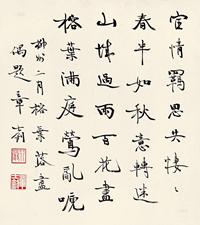 宦情羈思共悽〻
春半如秋意轉迷
山城過雨百花盡
榕葉滿庭鶯亂嗁
柳州二月榕葉落盡
偶題 章